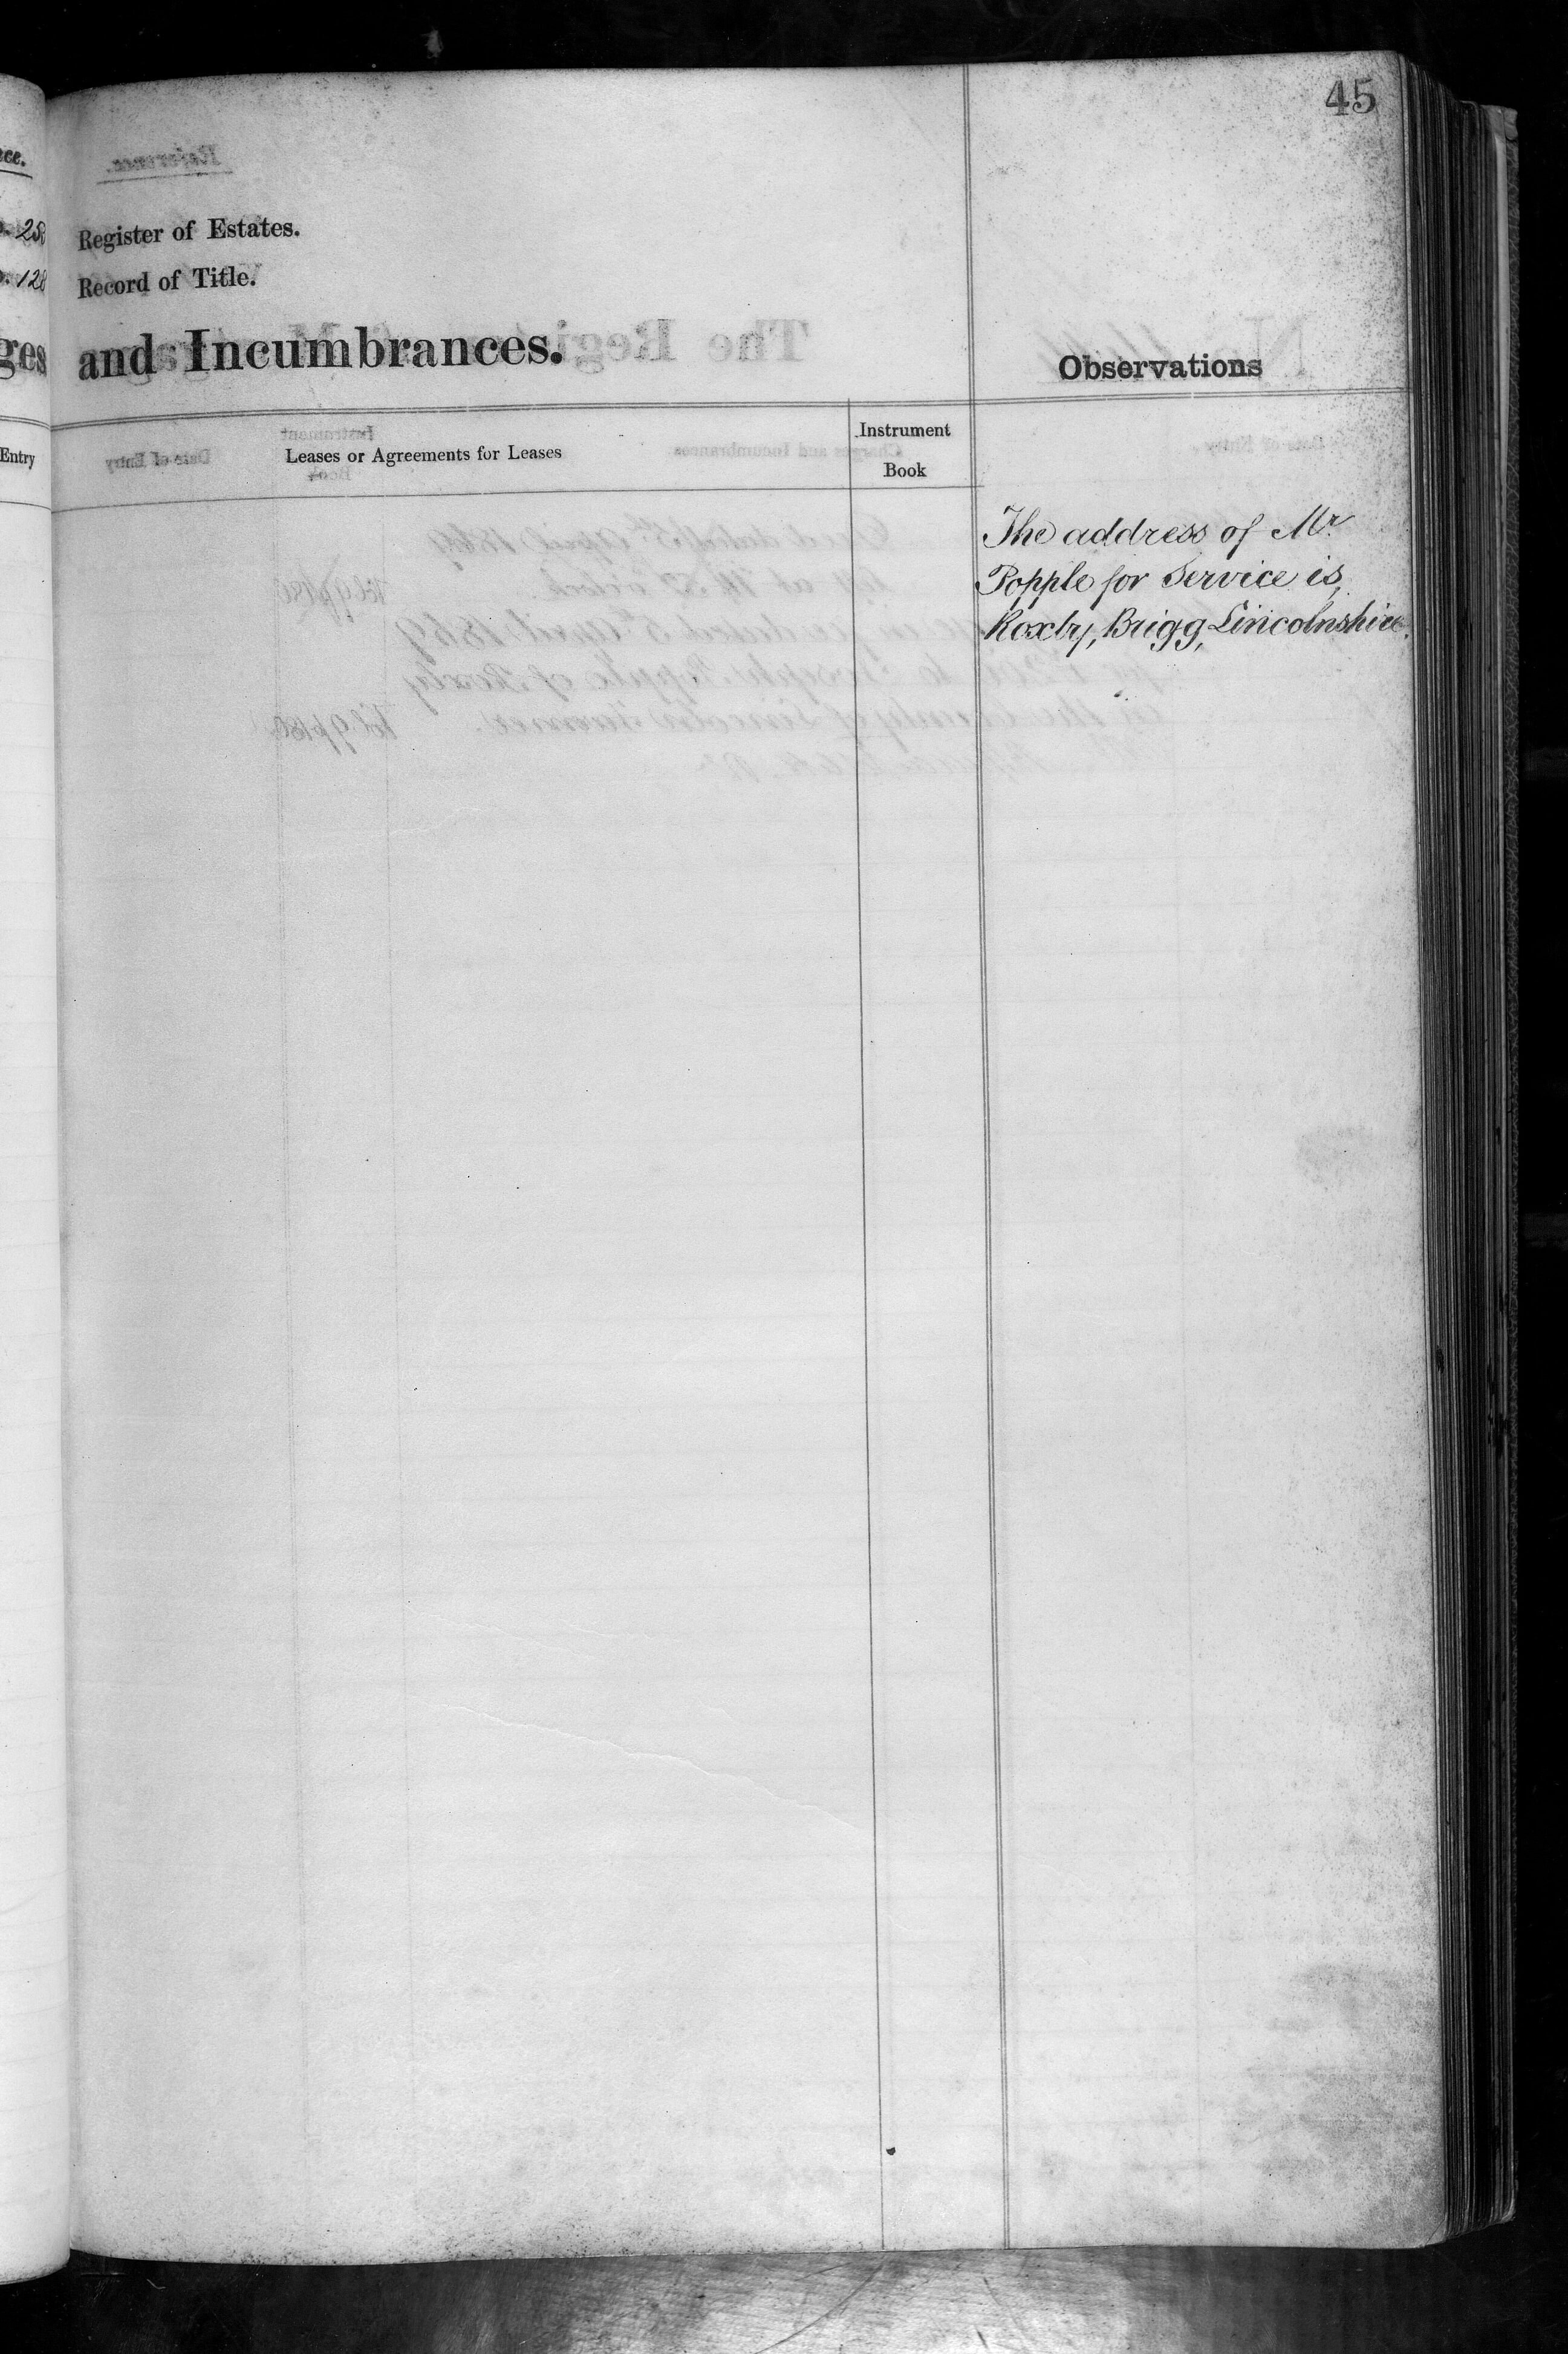 45
Register of Estates.
Record of Title.
and Incumbrances.
Observations
Entry
Leases or Agreements for Leases
Instrument
Book
The address of Mr.
Popple for Service is,
Roxby, Brigg, Lincolnshire.